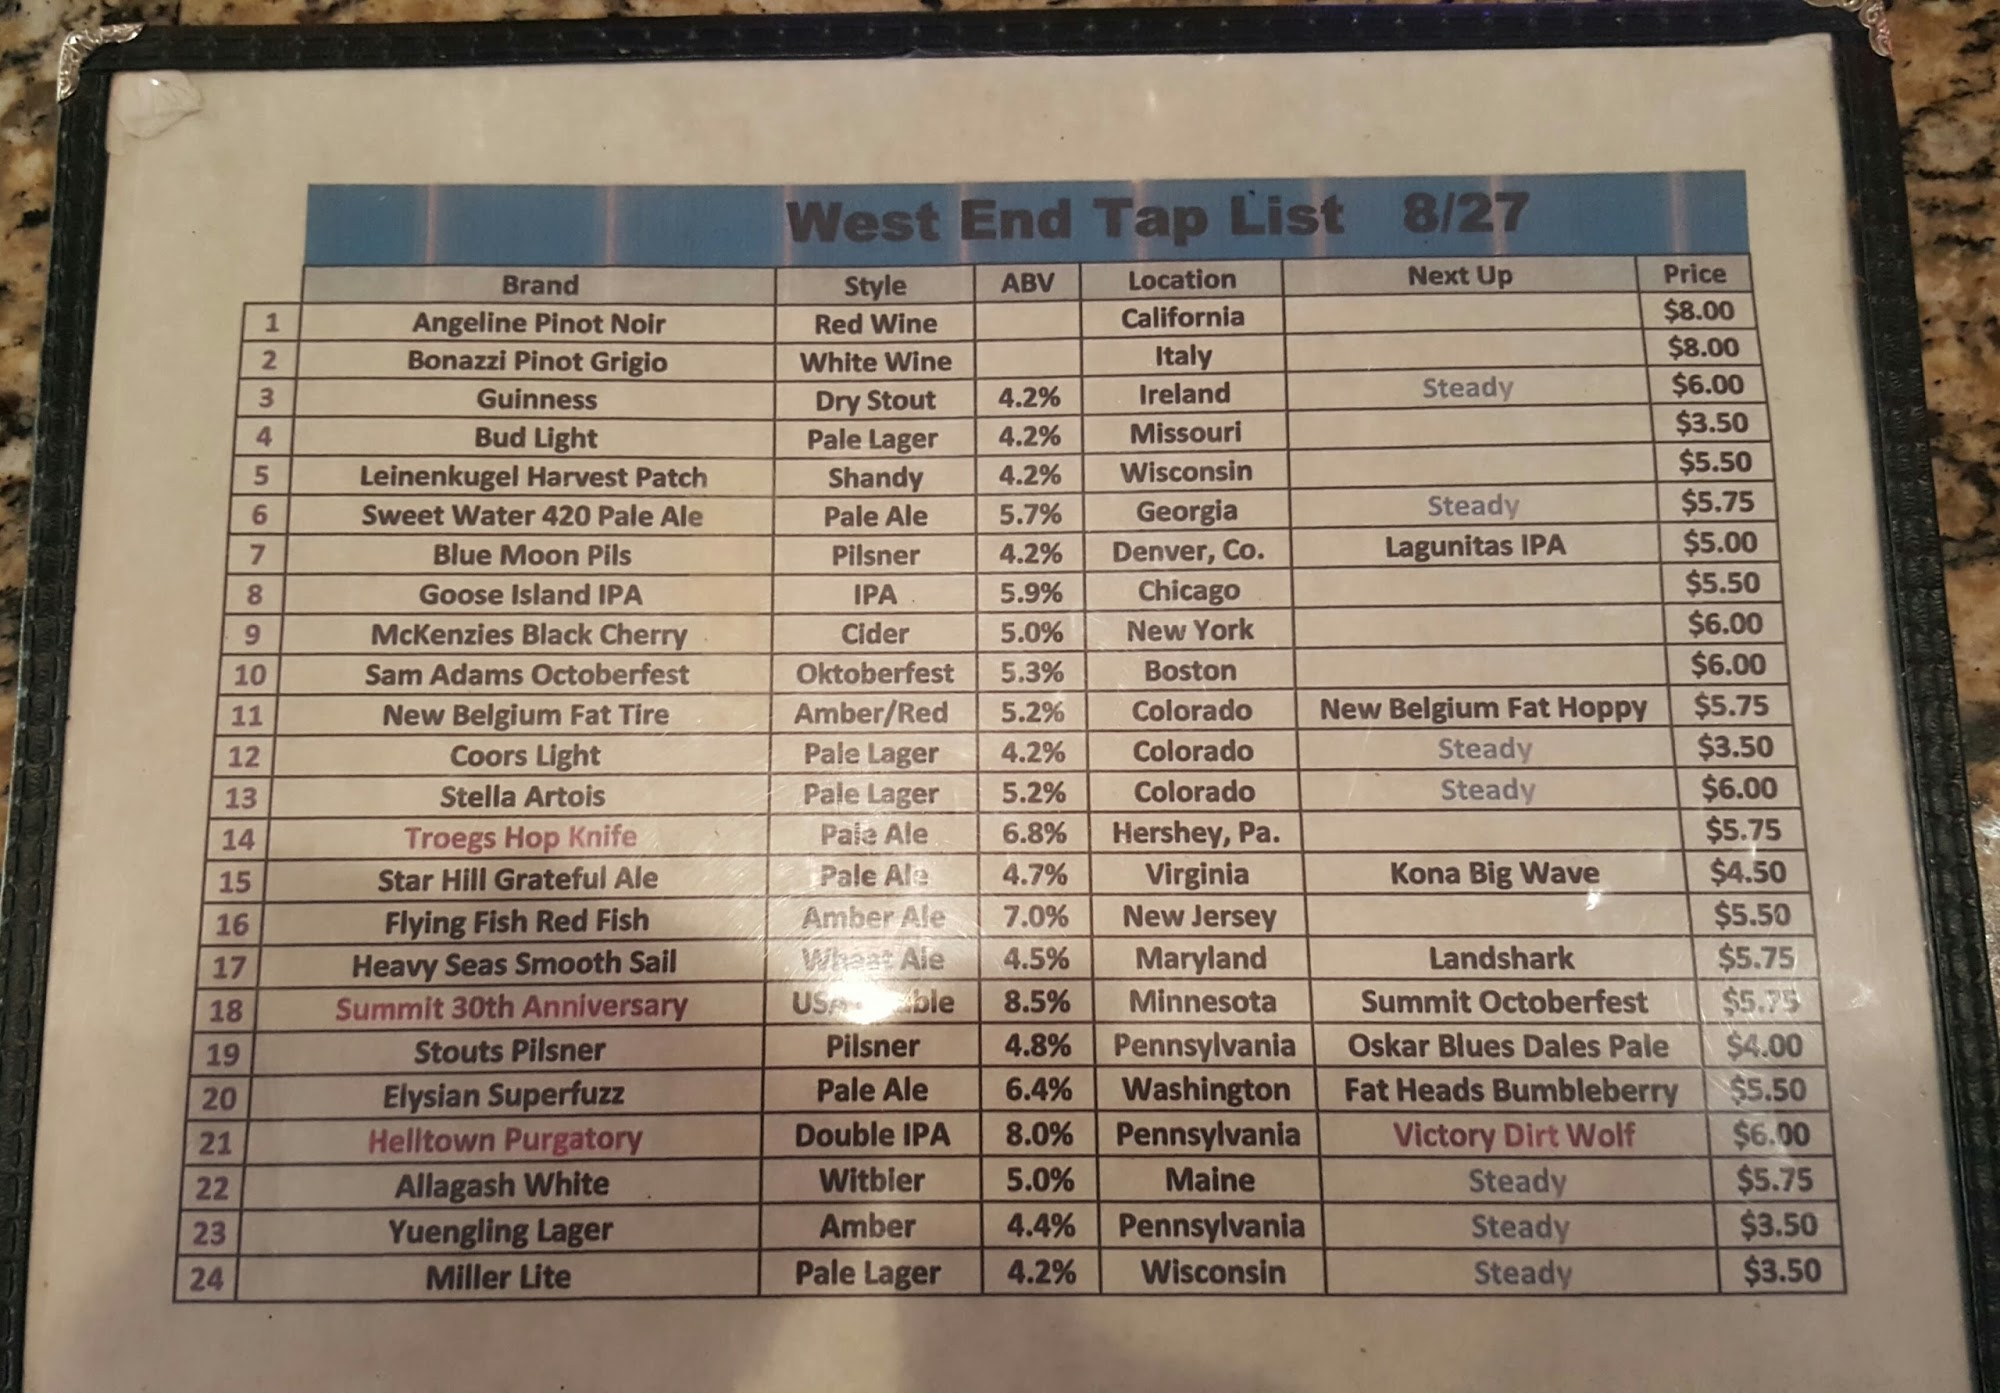 West End Tap List 8/27
Brand Style ABV Location Next Up Price
1 Angeline Pinot Noir Red Wine California $8.00
2 Bonazzi Pinot Grigio White Wine Italy $8.00
3 Guinness Dry Stout 4.2% Ireland Steady $6.00
4 Bud Light Pale Lager 4.2% Missouri $3.50
5 Leinenkugel Harvest Patch Shandy 4.2% Wisconsin $5.50
6 Sweet Water 420 Pale Ale Pale Ale 5.7% Georgia Steady $5.75
7 Blue Moon Pils Pilsner 4.2% Denver, Co. Lagunitas IPA $5.00
8 Goose Island IPA IPA 5.9% Chicago $5.50
9 McKenzies Black Cherry Cider 5.0% New York $6.00
10 Sam Adams Octoberfest Oktoberfest 5.3% Boston $6.00
11 New Belgium Fat Tire Amber/Red 5.2% Colorado New Belgium Fat Hoppy $5.75
12 Coors Light Pale Lager 4.2% Colorado Steady $3.50
13 Stella Artois Pale Lager 5.2% Colorado Steady $6.00
14 Troegs Hop Knife Pale Ale 6.8% Hershey, Pa. $5.75
15 Star Hill Grateful Ale Pale Ale 4.7% Virginia Kona Big Wave $4.50
16 Flying Fish Red Fish Amber Ale 7.0% New Jersey $5.50
17 Heavy Seas Smooth Sail Wheat Ale 4.5% Maryland Landshark $5.75
18 Summit 30th Anniversary 8.5% Minnesota Summit Octoberfest $5.75
19 Stouts Pilsner Pilsner 4.8% Pennsylvania Oskar Blues Dales Pale $4.00
20 Elysian Superfuzz Pale Ale 6.4% Washington Fat Heads Bumbleberry $5.50
21 Helltown Purgatory Double IPA 8.0% Pennsylvania Victory Dirt Wolf $6.00
22 Allagash White Witbier 5.0% Maine Steady $5.75
23 Yuengling Lager Amber 4.4% Pennsylvania Steady $3.50
24 Miller Lite Pale Lager 4.2% Wisconsin Steady $3.50